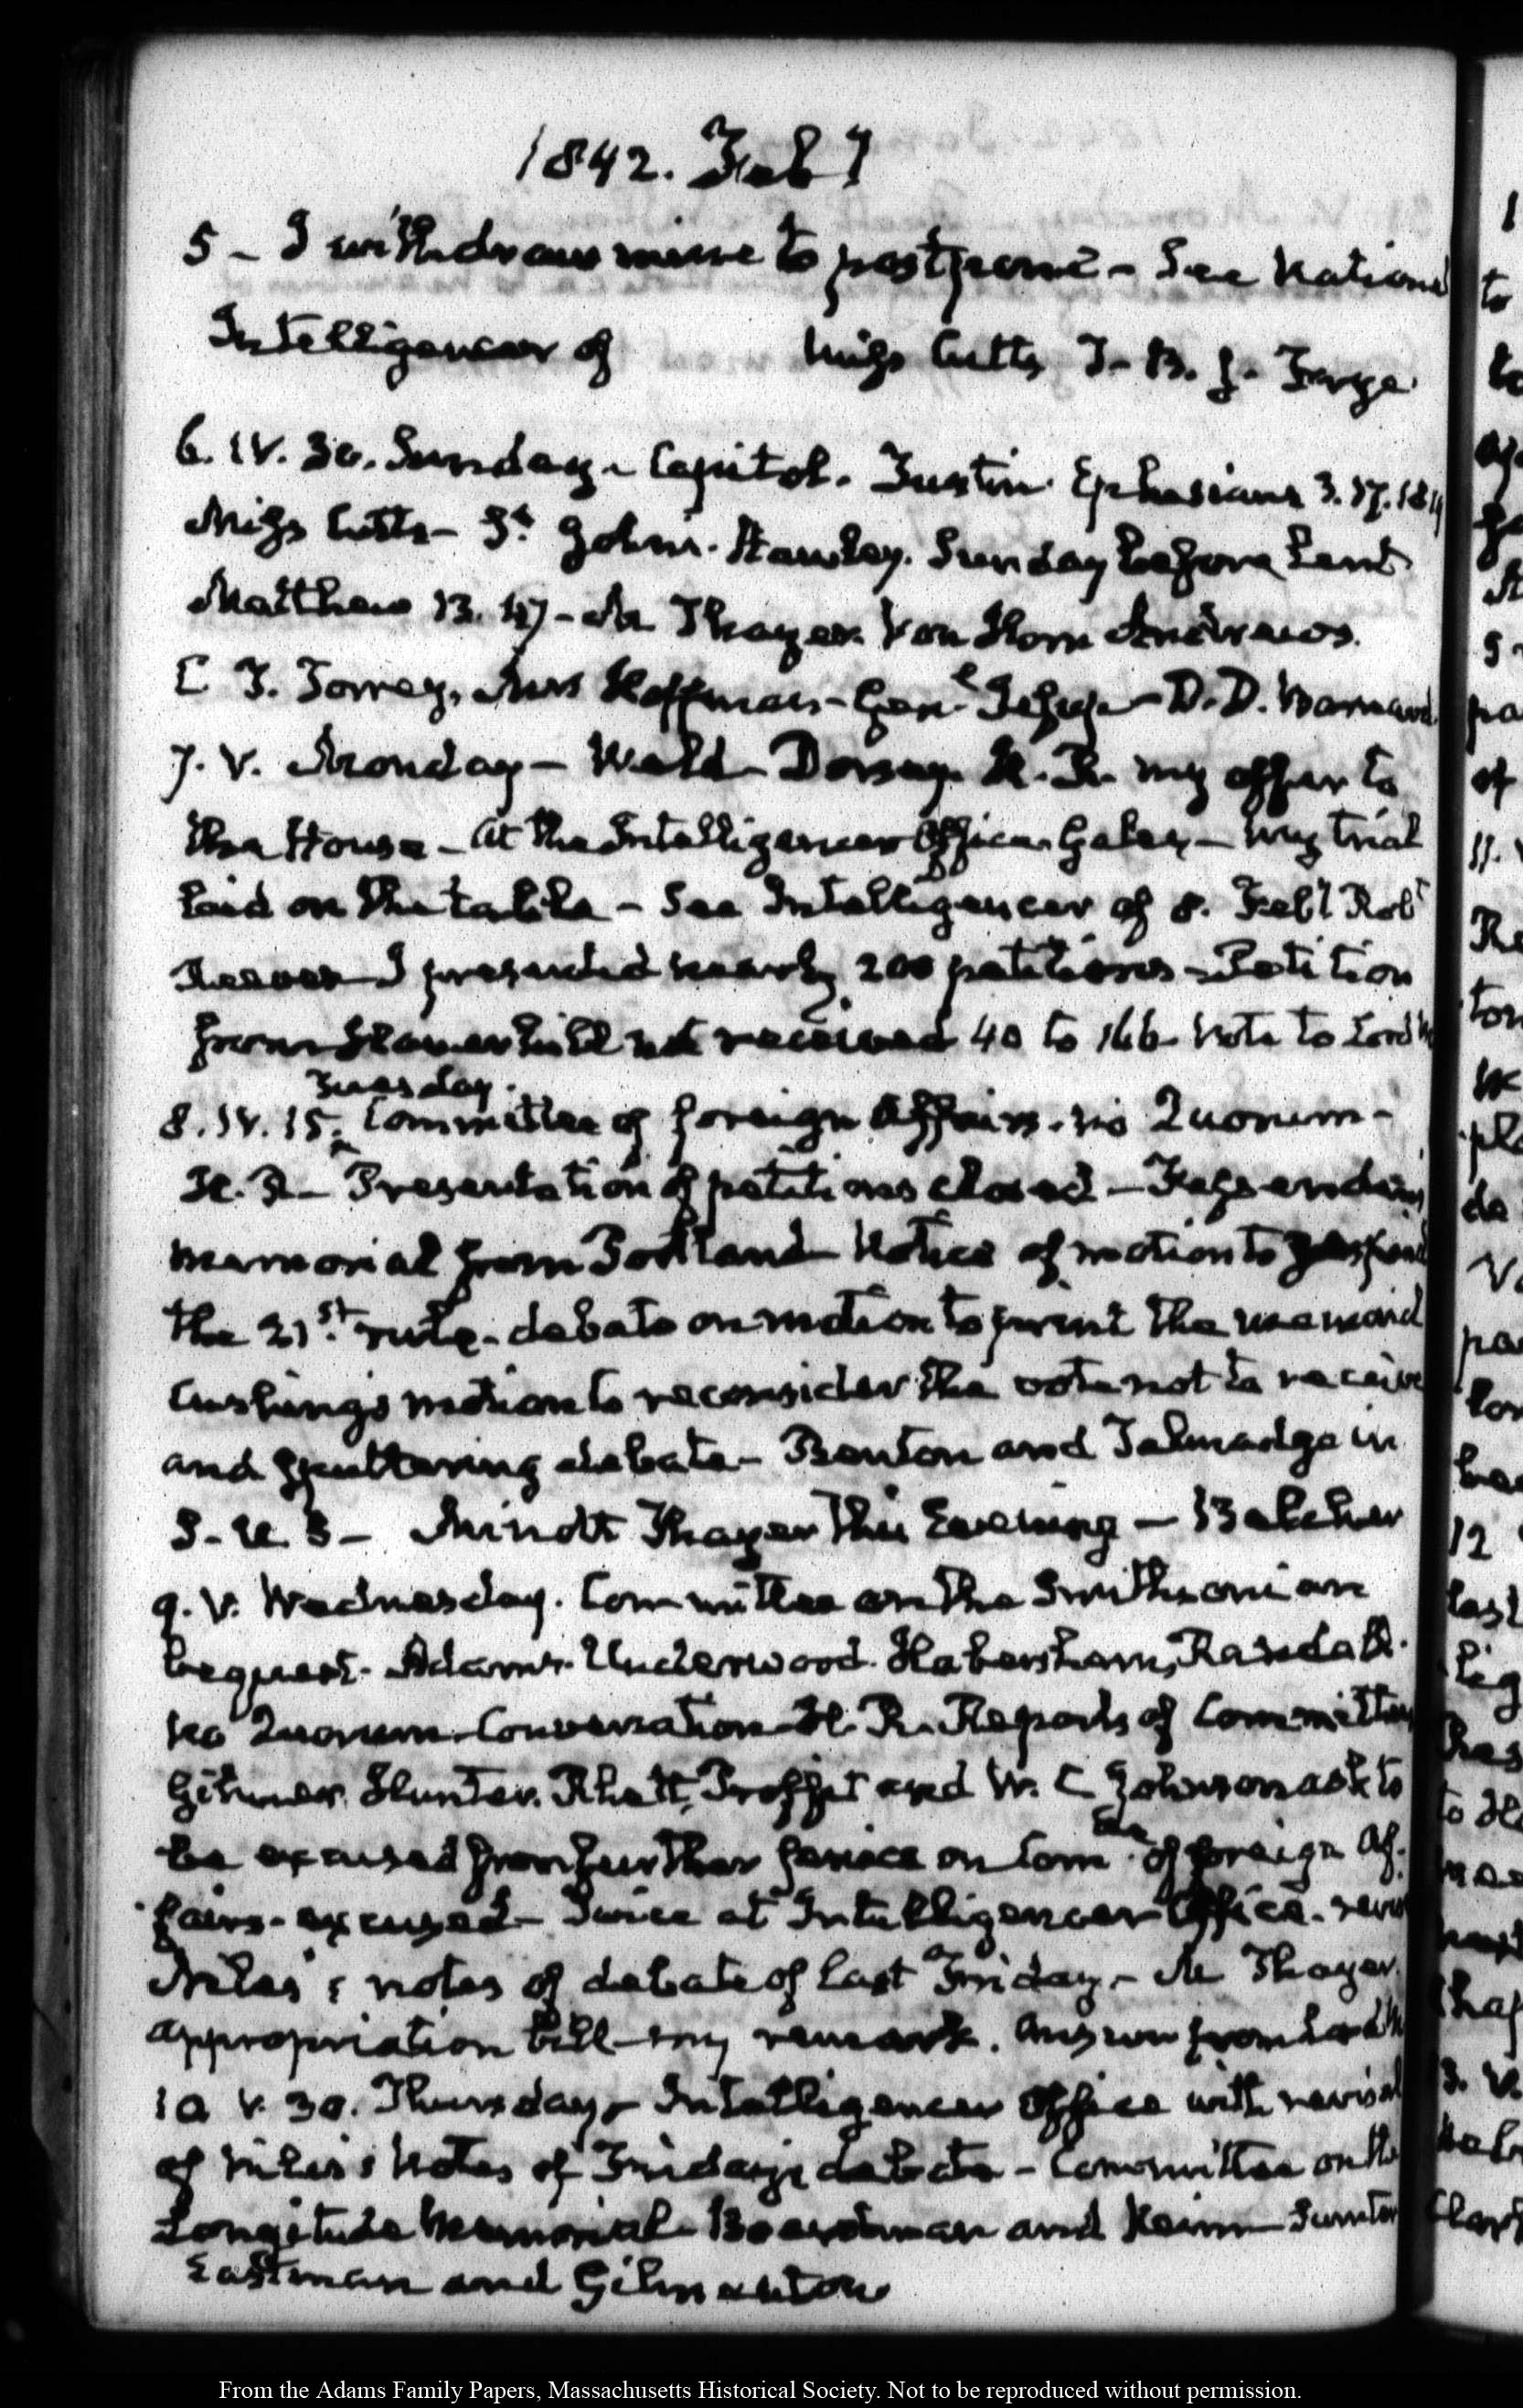 1842. Feby
5 - I withdraw mine to postpone - See National
Intelligencer of Miss Cutts T. B. J. Frye
6. IV. 30. Sunday - Capitol. Tustin Ephesians 3. 17. 18. 19
Miss Cutts - St. John's. Hawley. Sunday before Lent
Matthew 13. 47 - Mr Thayer Van Horn Andrews.
C T. Torrey, Mrs Hoffman - Genl Jesup - D. D. Barnard
7. V. Monday - Weld - Dorsey H. R. my offer to
the House - at the Intelligencer Office Gales - My trial
laid on the table - See Intelligencer of 8. Feby Robt
I presented nearly 200 petitions - Petition
from Haverhill not received 40 to 166 Note to Lord M
Tuesday.
8. IV. 15. Committee of foreign Affairs. no Quorum -
H. R - Presentation of petitions closed - Fessenden's
memorial from Portland Notice of motion to
the 21st. rule - debate on motion to print the memorial
Cushing's motion to reconsider the vote not to receive
and sputtering debate - Benton and Talmadge in
S. U. S - Minott Thayer this Evening - Belcher
9. V. Wednesday. Committee on the Smithsonian
bequest. Adams. Underwood. Habersham, Randall.
No Quorum. Conversation H. R. Reports of Committees
Gilmer. Hunter. Rhett, Proffit and W. C Johnson ask to
be excused from further service on Comtee of foreign Af-
fairs - excused - Twice at Intelligencer Office.
Niles's notes of debate of last Friday - Mr Thayer
appropriation bill - my remark. Answer from Lord M
10 V. 30. Thursday - Intelligencer Office with revisal
of Niles's Notes of Friday's debate - Committee on the
Longitude Memorial - Boardman and Keim Sumter
Eastman and Gilmanton
From the Adams Family Papers, Massachusetts Historical Society. Not to be reproduced without permission.